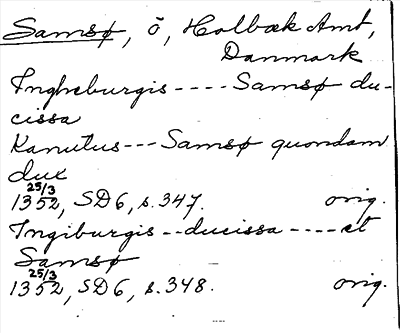 Samsø, ö, Holbæk Amt,
Danmark
Ingheburgis ---- Samsø du-
cissa
Kanutus --- Samsø quondam
dux
25/3
1352, SD6, s. 347. orig.
Ingiburgis -- ducissa ---- et
Samsø
25/3
1352, SD6, s. 348. orig.